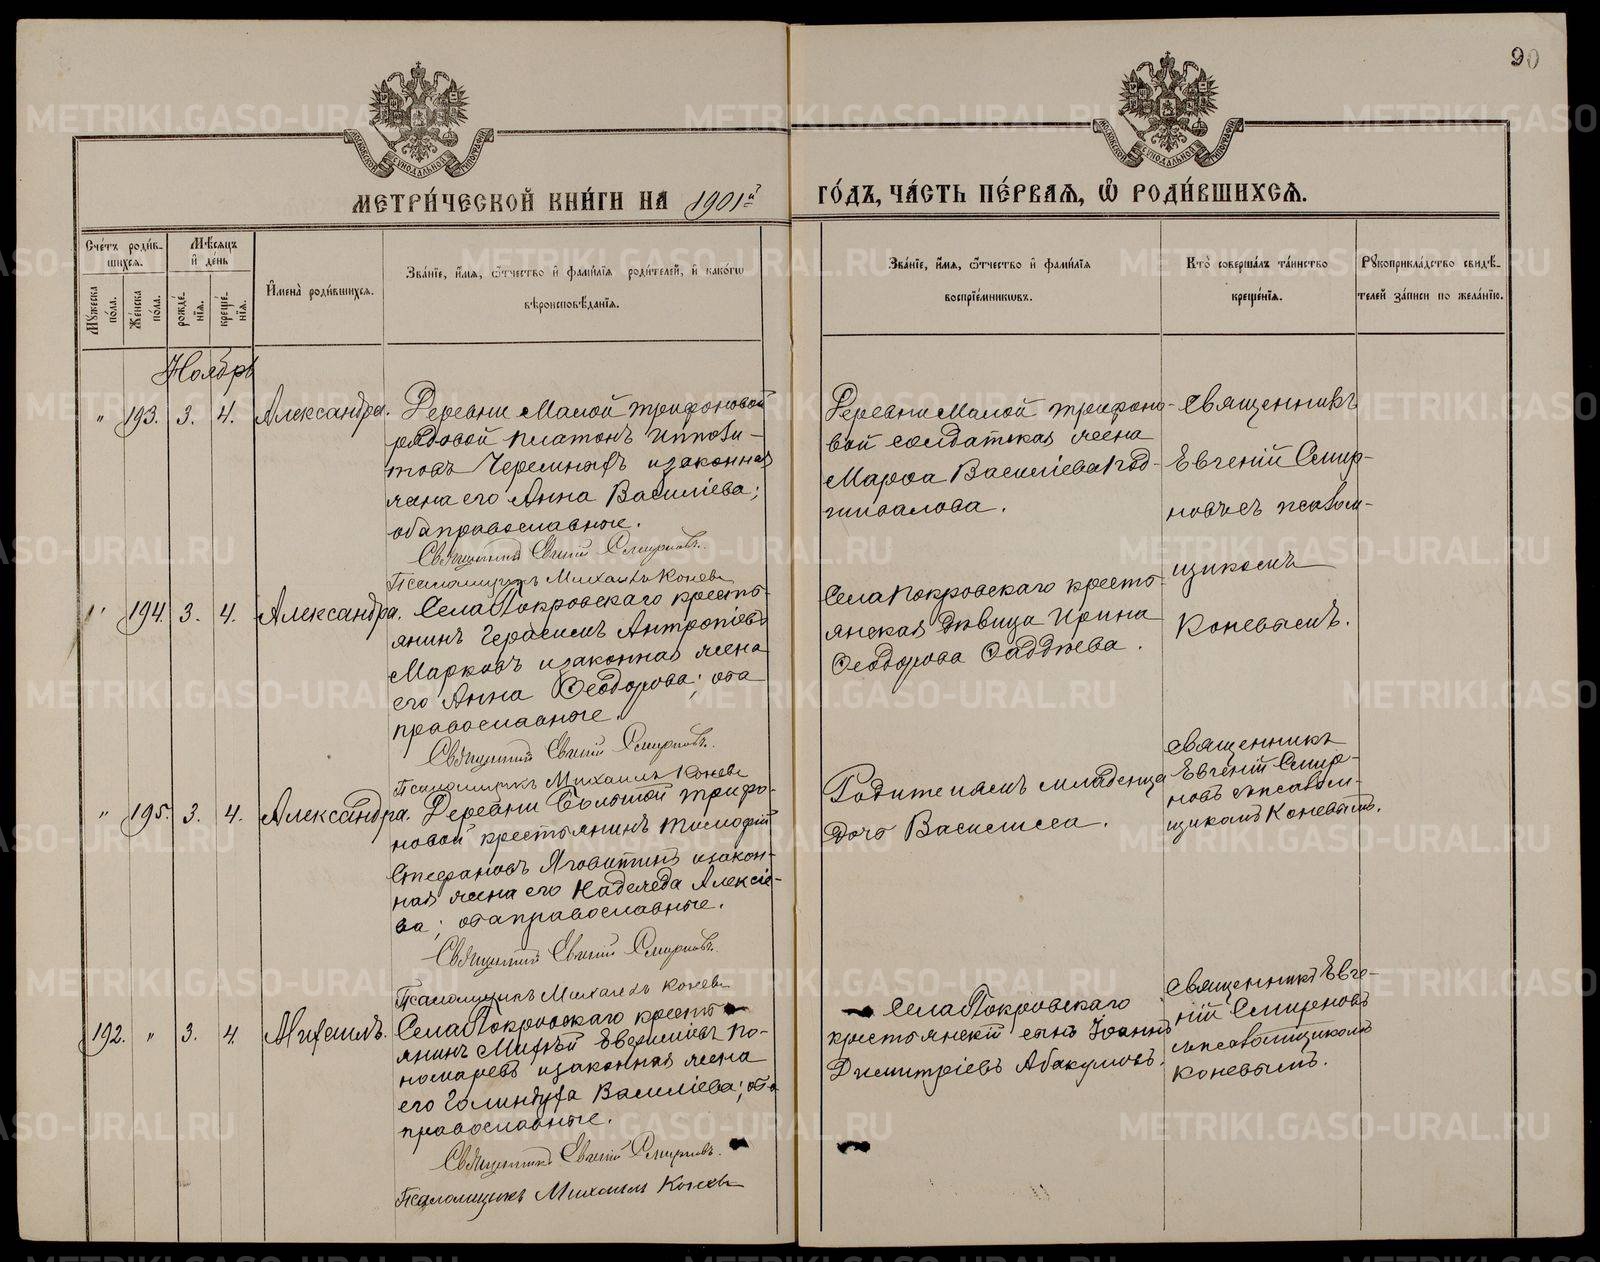 90
МЕТРИ́ЧЕСКОЙ КНИ́ГИ НА 1901й ГО́ДЪ, ЧА́СТЬ ПЕ́РВАЯ, Ѡ РОДИ́ВШИХСЯ.
Сче́тъ роди́в-
шихся.
Мѣ́сяцъ
и҆ де́нь
Мꙋ́жеска по́ла.
Же́нска по́ла.
рожде́-
нїя.
креще́-
нїя.
И҆мена̀ роди́вшихся.
Зва́нїе, и҆́мя, ѻ҆́тчество и҆ фами́лїя роди́телей, и҆ како́гѡ
вѣроисповѣ́данїя.
Зва́нїе, и҆́мя, ѻ҆́тчество и҆ фами́лїя
воспрїе́мникѡвъ.
Кто̀ соверша́лъ та́инство
креще́нїя.
Рꙋкоприкла́дство свидѣ́-
телей за́писи по жела́нїю.
Ноябрь
" 193. 3. 4. Александра.
Деревни Малой Трифоновой
рядовой Платонъ Ипполи-
товъ Черемныхъ и законная
жена его Анна Василіева;
оба православные.
Священникъ Евгеній Смирновъ.
Псаломщикъ Михаилъ Коневъ
Деревни Малой Трифоно-
вой солдатская жена
Марѳа Василіева Под-
шивалова.
Священникъ
Евгеній Смир-
новъ съ псалом-
щикомъ
Коневымъ.
" 194. 3. 4. Александра.
Села Покровскаго кресть-
янинъ Герасимъ Антропіевъ
Марковъ и законная жена
его Анна Ѳеодорова; оба
православные.
Священникъ Евгеній Смирновъ.
Псаломщикъ Михаилъ Коневъ
Села Покровскаго кресть-
янская дѣвица Ирина
Ѳеодорова Ѳаддѣева.
" 195. 3. 4. Александра.
Деревни Большой Трифо-
новой крестьянинъ Тимофей
Стефановъ Яговитинъ и закон-
ная жена его Надежда Алексіе-
ва; оба православные.
Священникъ Евгеній Смирновъ.
Псаломщикъ Михаилъ Коневъ
Родителемъ младенца
дочь Василисса.
Священникъ
Евгеній Смир-
новъ съ псалом-
щикомъ Коневымъ.
192. " 3. 4. Михаилъ.
Села Покровскаго кресть-
янинъ Михѣй Евфиміевъ По-
номаревъ и законная жена
его Голиндуха Василіева; оба
православные.
Священникъ Евгеній Смирновъ.
Псаломщикъ Михаилъ Коневъ
Села Покровскаго
крестьянскій сынъ Іоаннъ
Димитріевъ Абакумовъ.
Священникъ Евге-
ній Смирновъ
съ псаломщикомъ
Коневымъ.
METRIKI.GASO-URAL.RU